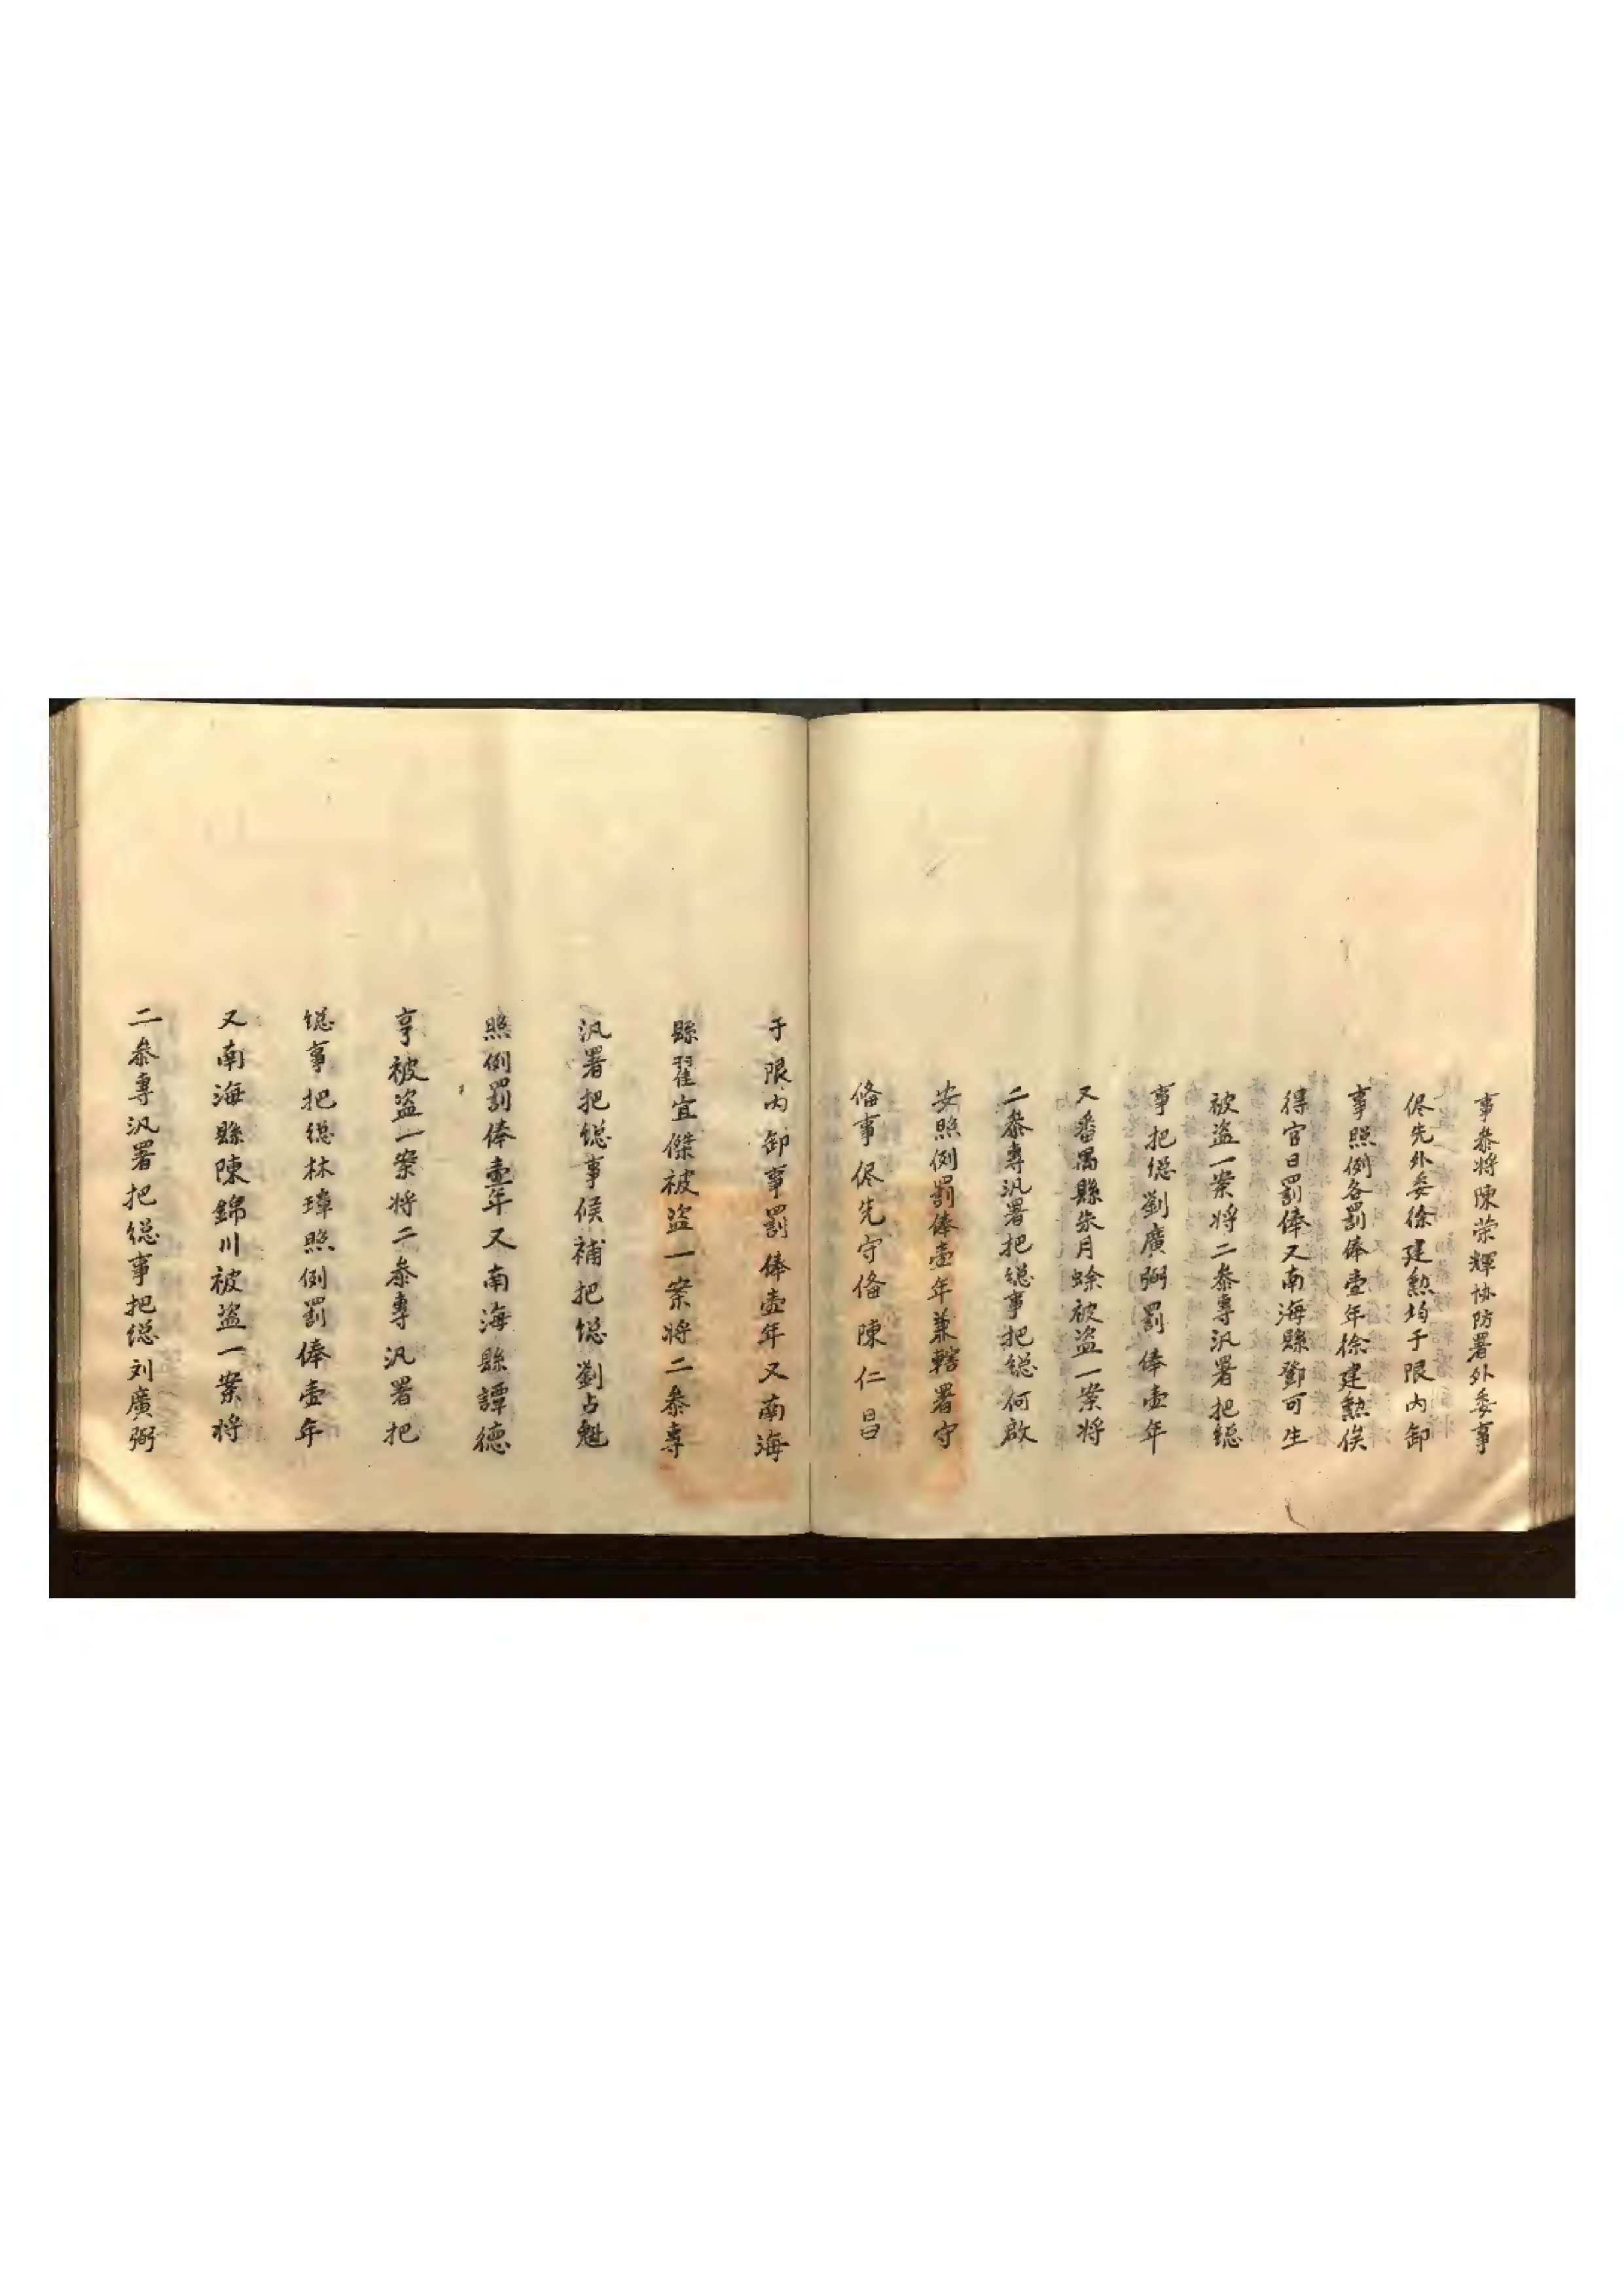 事叅将陳荣輝協防署外委事
侭先外委徐建勲均于限内卸
事照例各罰俸壹年徐建勲俟
得官日罰俸又南海縣鄧可生
被盗一案将二叅專汛署把總
事把總劉廣弼罰俸壹年
又番禺縣朱月蜍被盗一案将
二叅專汛署把總事把總何啟
安照例罰俸壹年兼轄署守
俻事侭先守俻陳仁昌
于限内卸事罰俸壹年又南海
縣翟宜傑被盗一案将二叅專
汛署把總事候補把總劉占魁
照例罰俸壹年又南海縣譚德
亨被盗一案将二叅專汛署把
總事把總林璋照例罰俸壹年
又南海縣陳錦川被盗一案将
二叅專汛署把總事把總刘廣弼